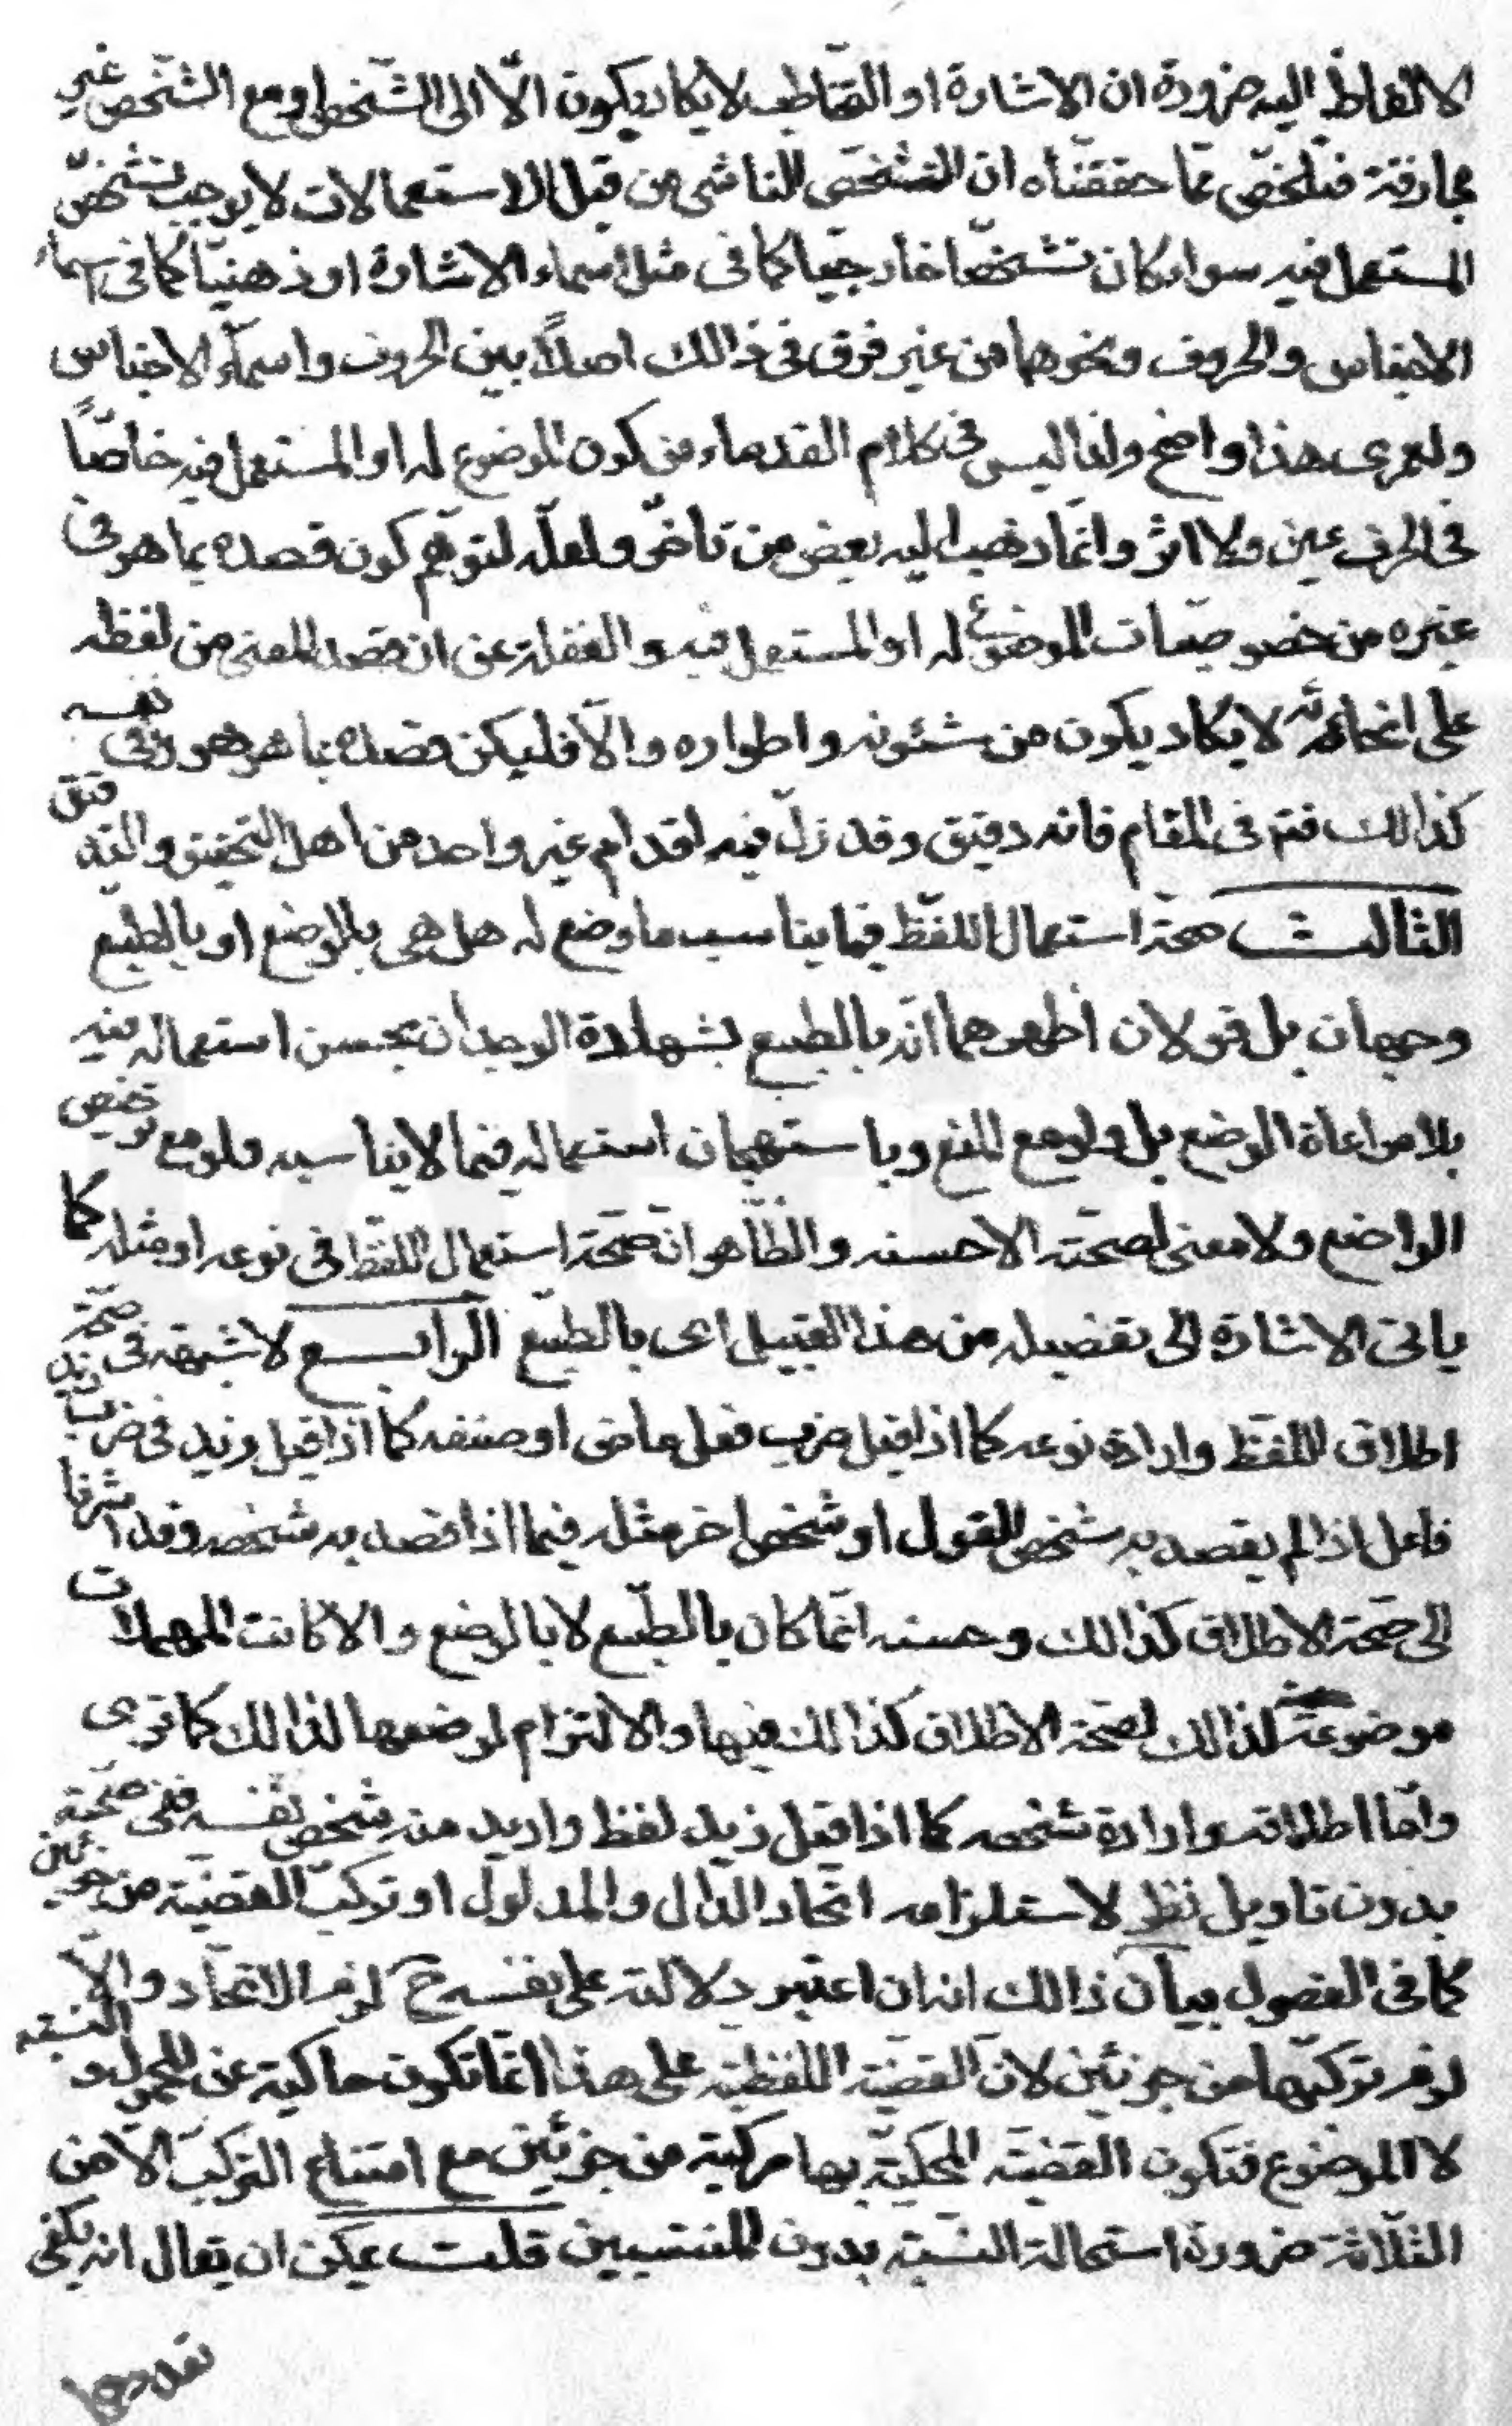 الالفاظ اليه ضرورة ان الاشارة او التخاطب لا يكاد يكون الّا الى الشّخص او مع الشّخص غير
مجازفة فتلخّص ممّا حققناه ان التشخّص الناشى من قبل الاستعمالات لا يوجب تشخّص
المستعمل فيه سواء كان تشخّصا خارجيّا كما فى مثل اسماء الاشارة او ذهنيّا كما فى اسماء
الاجناس والحروف ونحوهما من غير فرق فى ذالك اصلاً بين الحروف واسماء الاجناس
ولعمرى هذا واضح ولذا ليس فى كلام القدماء من كون الموضوع له او المستعمل فيه خاصّاً
فى الحرف عين ولا اثر وانّما ذهب اليه بعض من تاخّر ولعلّه لتوهّم كون قصده بما هو فى
غيره من خصوصيّات الموضوع له او المستعمل فيه والغفلة عن ان قصد المعنى من لفظه
على انحائه لا يكاد يكون من شئونه واطواره والّا فليكن قصده بما هو هو وفى نفسه
كذالك فتم فى المقام فانه دقيق وقد زلّ فيه اقدام غير واحد من اهل التحقيق والتدقيق
الثالث صحة استعمال اللفظ فيما يناسب ما وضع له هل هى بالوضع او بالطبع
وجهان بل قولان اظهرهما انّه بالطبع بشهادة الوجدان بحسن استعماله فيه
بلا مراعاة الوضع بل ولو مع المنع وباستهجان استعماله فيما لا يناسبه ولو مع ترخيص
الواضع ولا معنى لصحته الا حسنه والظّاهر انّ صحّة استعمال اللفظ فى نوعه او مثله كما
ياتى الاشارة الى تفضيله من هذا القبيل اعى بالطّبع الرابع لا شبهة فى صحّة
اطلاق اللفظ وارادة نوعه كما اذا قيل ضرب فعل ماض او صنفه كما اذا قيل زيد فى ضرب زيد
فاعل اذا لم يقصد به شخص القول او شخص اخر مثله فيما اذا قصد به شخصه وقد اشرنا
الى صحّة الاطلاق كذالك وحسنه انّما كان بالطّبع لا بالوضع والا كانت المهملات
موضوعة لذالك لصحّة الاطلاق كذالك فيها والالتزام لوضعها لذالك كما ترى
وامّا اطلاقه وارادة شخصه كما اذا قيل زيد لفظ واريد منه شخص نفسه ففى صحّته
بدون تاويل نظر لاستلزامه اتّحاد الدّال والمدلول او تركّب القضيّة من جزئين
كما فى الفصول بيان ذالك انه ان اعتبر دلالته على نفسه ح لزم الاتّحاد والّا
لزم تركّبها من جزئين لانّ القضيّة اللفظية على هذا انّما تكون حاكية عن المحمول والنسبة
لا الموضوع فتكون القضيّة المحكيّة بها مركبة من جزئين مع امتناع التركّب الّا من
الثلاثة ضرورة استحالة النسبة بدون المنتسبين قلت يمكن ان يقال انه يكفى
تعددهما